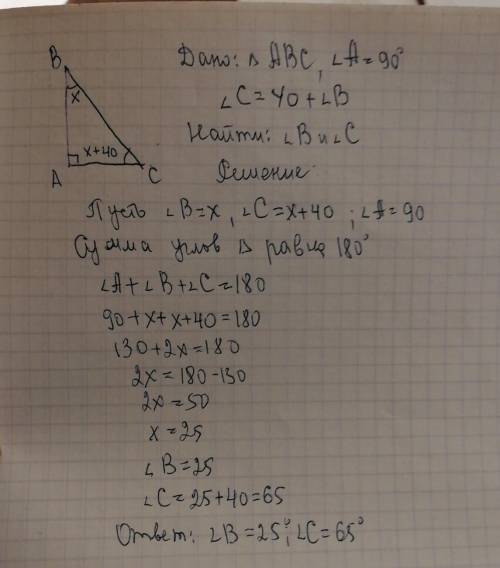 B
x
x+40
A
C
Дано: △ABC, ∠A=90°
∠C=40+∠B
Найти: ∠B и ∠C
Решение:
Пусть ∠B=x, ∠C=x+40; ∠A=90
Сумма углов △ равна 180°
∠A+∠B+∠C=180
90+x+x+40=180
130+2x=180
2x=180-130
2x=50
x=25
∠B=25
∠C=25+40=65
Ответ: ∠B=25°; ∠C=65°